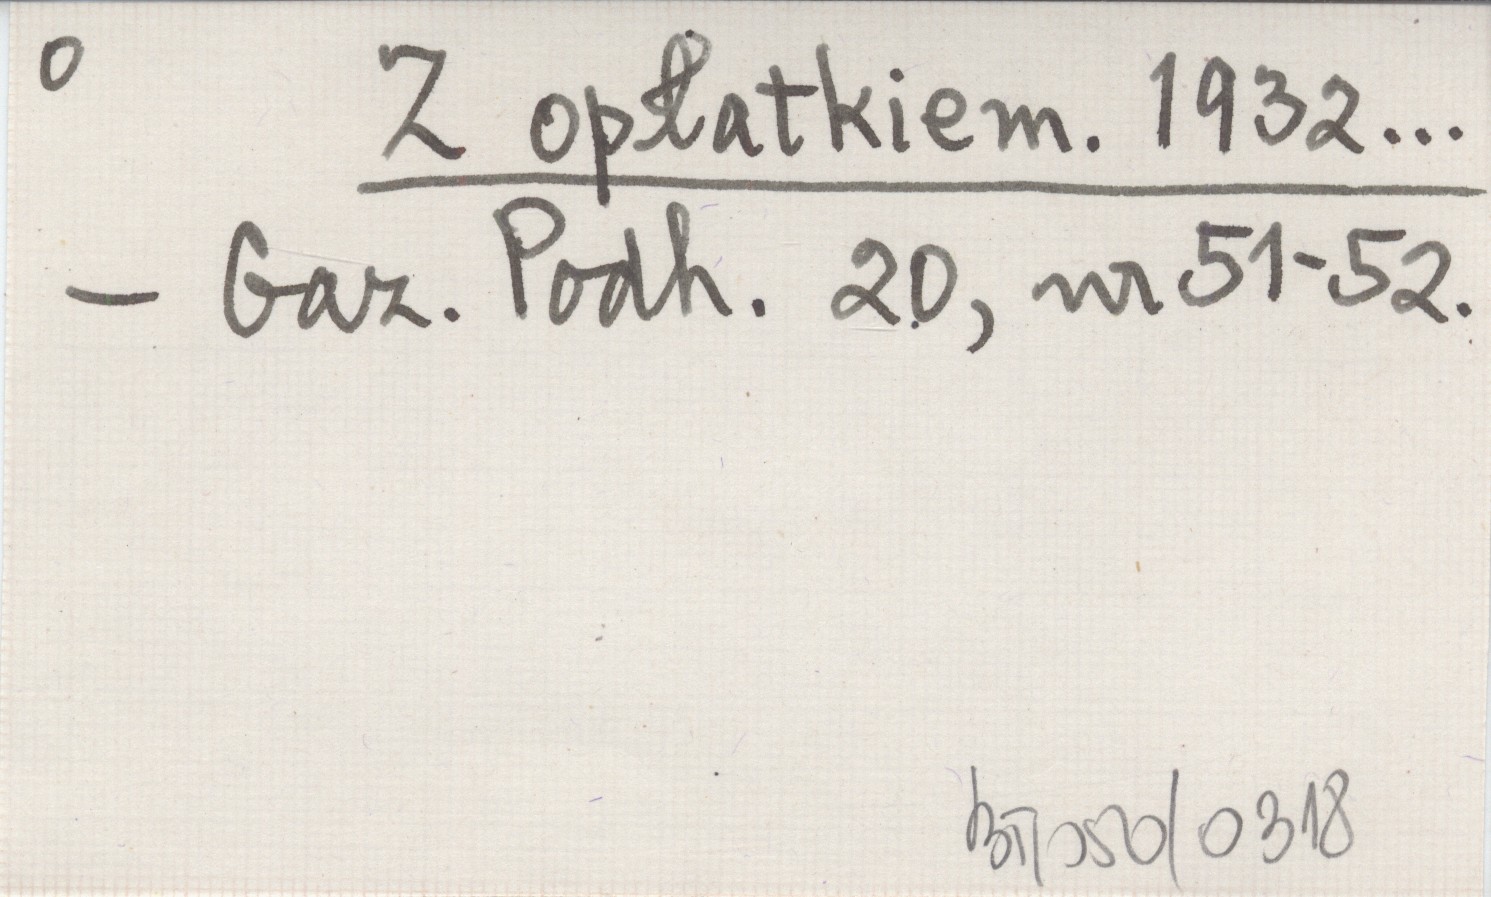 o Z opłatkiem. 1932...
— Gaz. Podh. 20, nr 51-52.
0318